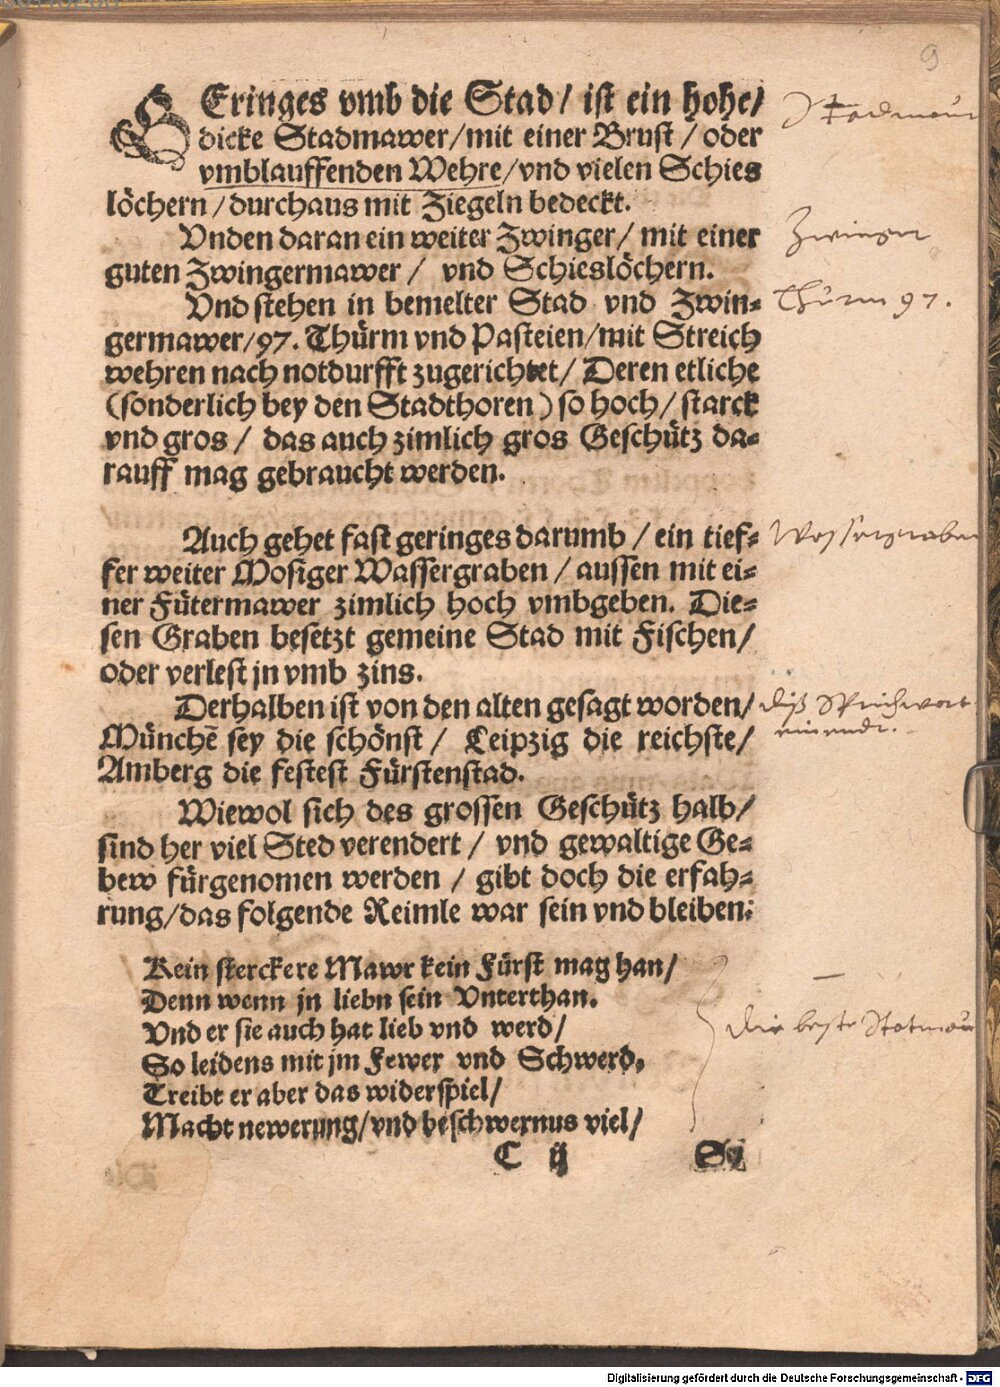 9
GEringes vmb die Stad/ ist ein hohe/
dicke Stadmawer/mit einer Brust/oder
vmblauffenden Wehre/vnd vielen Schies
löchern/durchaus mit Ziegeln bedeckt.
Stadmaur
Vnden daran ein weiter Zwinger/ mit einer
guten Zwingermawer/ vnd Schieslöchern.
Zwinger
Vnd stehen in bemelter Stad vnd Zwin-
germawer/97. Thürm vnd Pasteien/mit Streich
wehren nach notdurfft zugerichtet/ Deren etliche
(sonderlich bey den Stadthoren) so hoch/starck
vnd gros/ das auch zimlich gros Geschütz da-
rauff mag gebraucht werden.
Thürm 97.
Auch gehet fast geringes darumb/ ein tief-
fer weiter Mosiger Wassergraben/ aussen mit ei-
ner Fütermawer zimlich hoch vmbgeben. Die-
sen Graben besetzt gemeine Stad mit Fischen/
oder verlest jn vmb zins.
Wassergraben
Derhalben ist von den alten gesagt worden/
Münchē sey die schönst/ Leipzig die reichste/
Amberg die festest Fürstenstad.
diß Sprichwort
Wiewol sich des grossen Geschütz halb/
sind her viel Sted verendert/ vnd gewaltige Ge-
bew fürgenomen werden/ gibt doch die erfah-
rung/das folgende Reimle war sein vnd bleiben:
Kein sterckere Mawr kein Fürst mag han/
Denn wenn jn liebn sein Vnterthan.
Vnd er sie auch hat lieb vnd werd/
So leidens mit jm Fewer vnd Schwerd,
Treibt er aber das widerspiel/
Macht newerung/vnd beschwernus viel/
die beste Statmaur
C ij
Digitalisierung gefördert durch die Deutsche Forschungsgemeinschaft - DFG